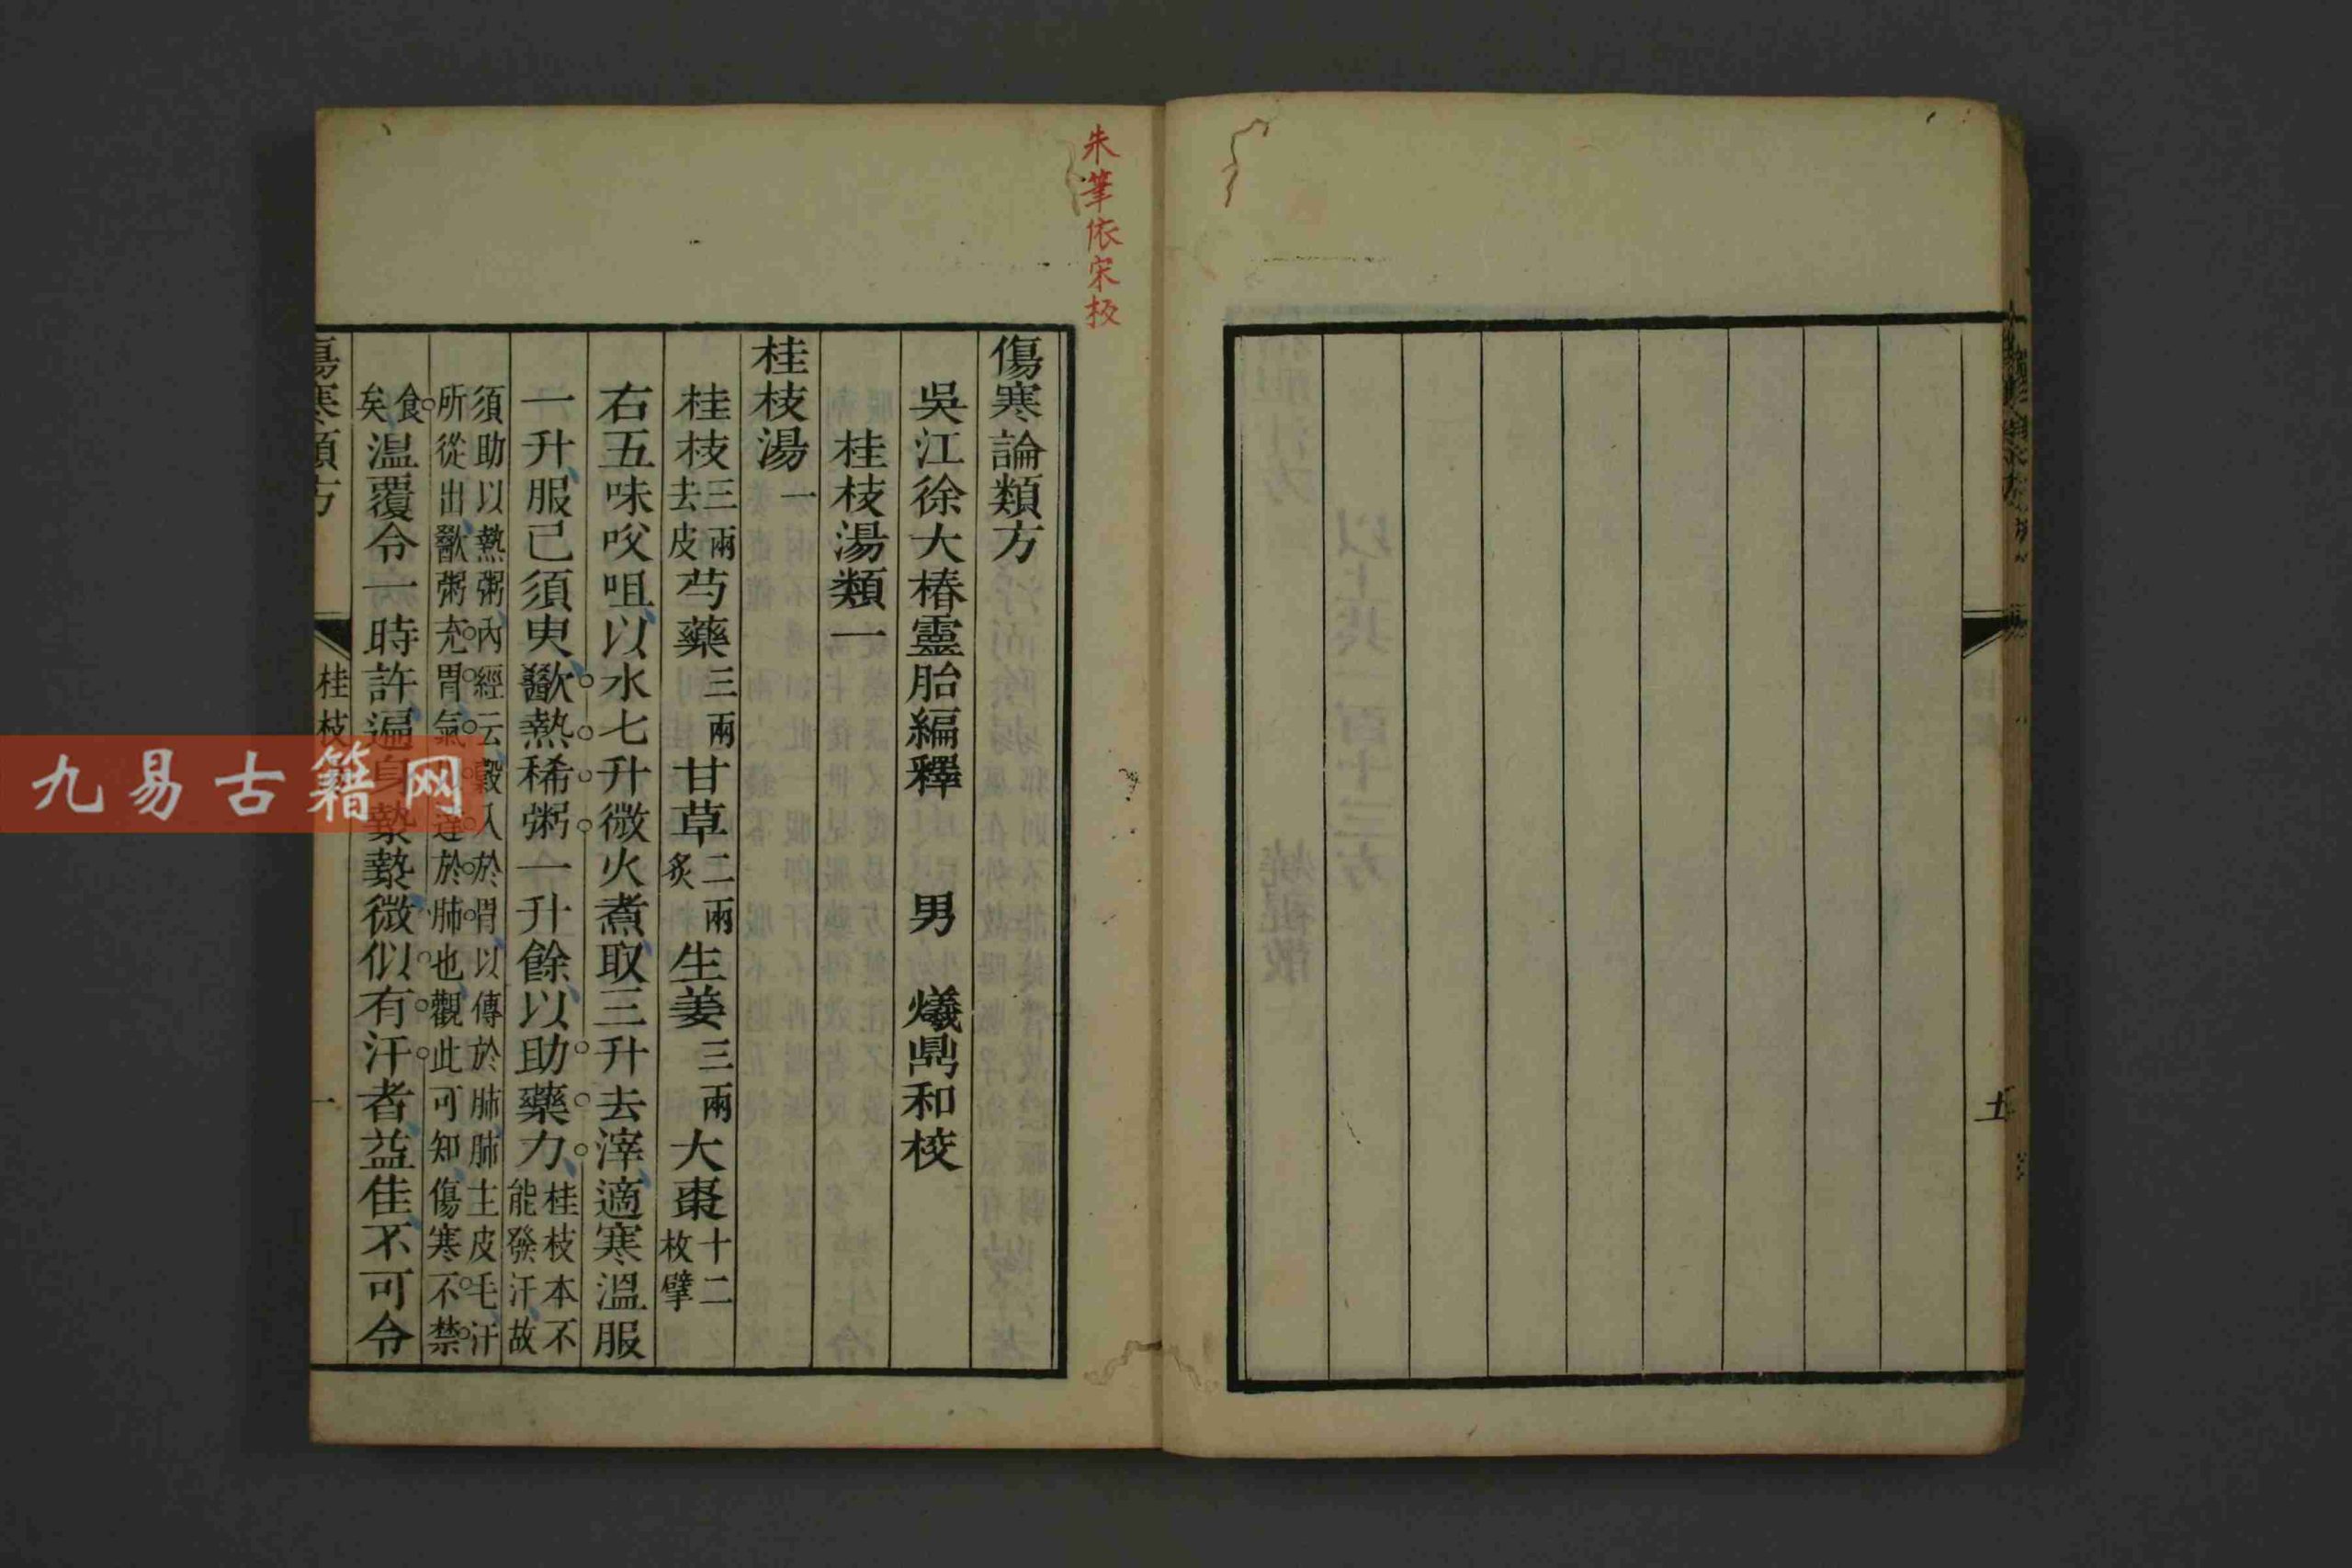 朱筆依宋校
傷寒論類方
吳江徐大椿靈胎編釋　男　爔鼎和校
桂枝湯類一
桂枝湯一
桂枝三兩去皮芍藥三兩甘草二兩炙生姜三兩大棗十二枚擘
右五味㕮咀以水七升微火煮取三升去滓適寒溫服
一升服已須臾歠熱稀粥一升餘以助藥力桂枝本不能發汗故
須助以熱粥內經云穀入於胃以傳於肺肺主皮毛汗
所從出歠粥充胃氣達於肺也觀此可知傷寒不禁
食矣温覆令一時許遍身漐漐微似有汗者益佳不可令
傷寒類方
桂枝
一
九易古籍网